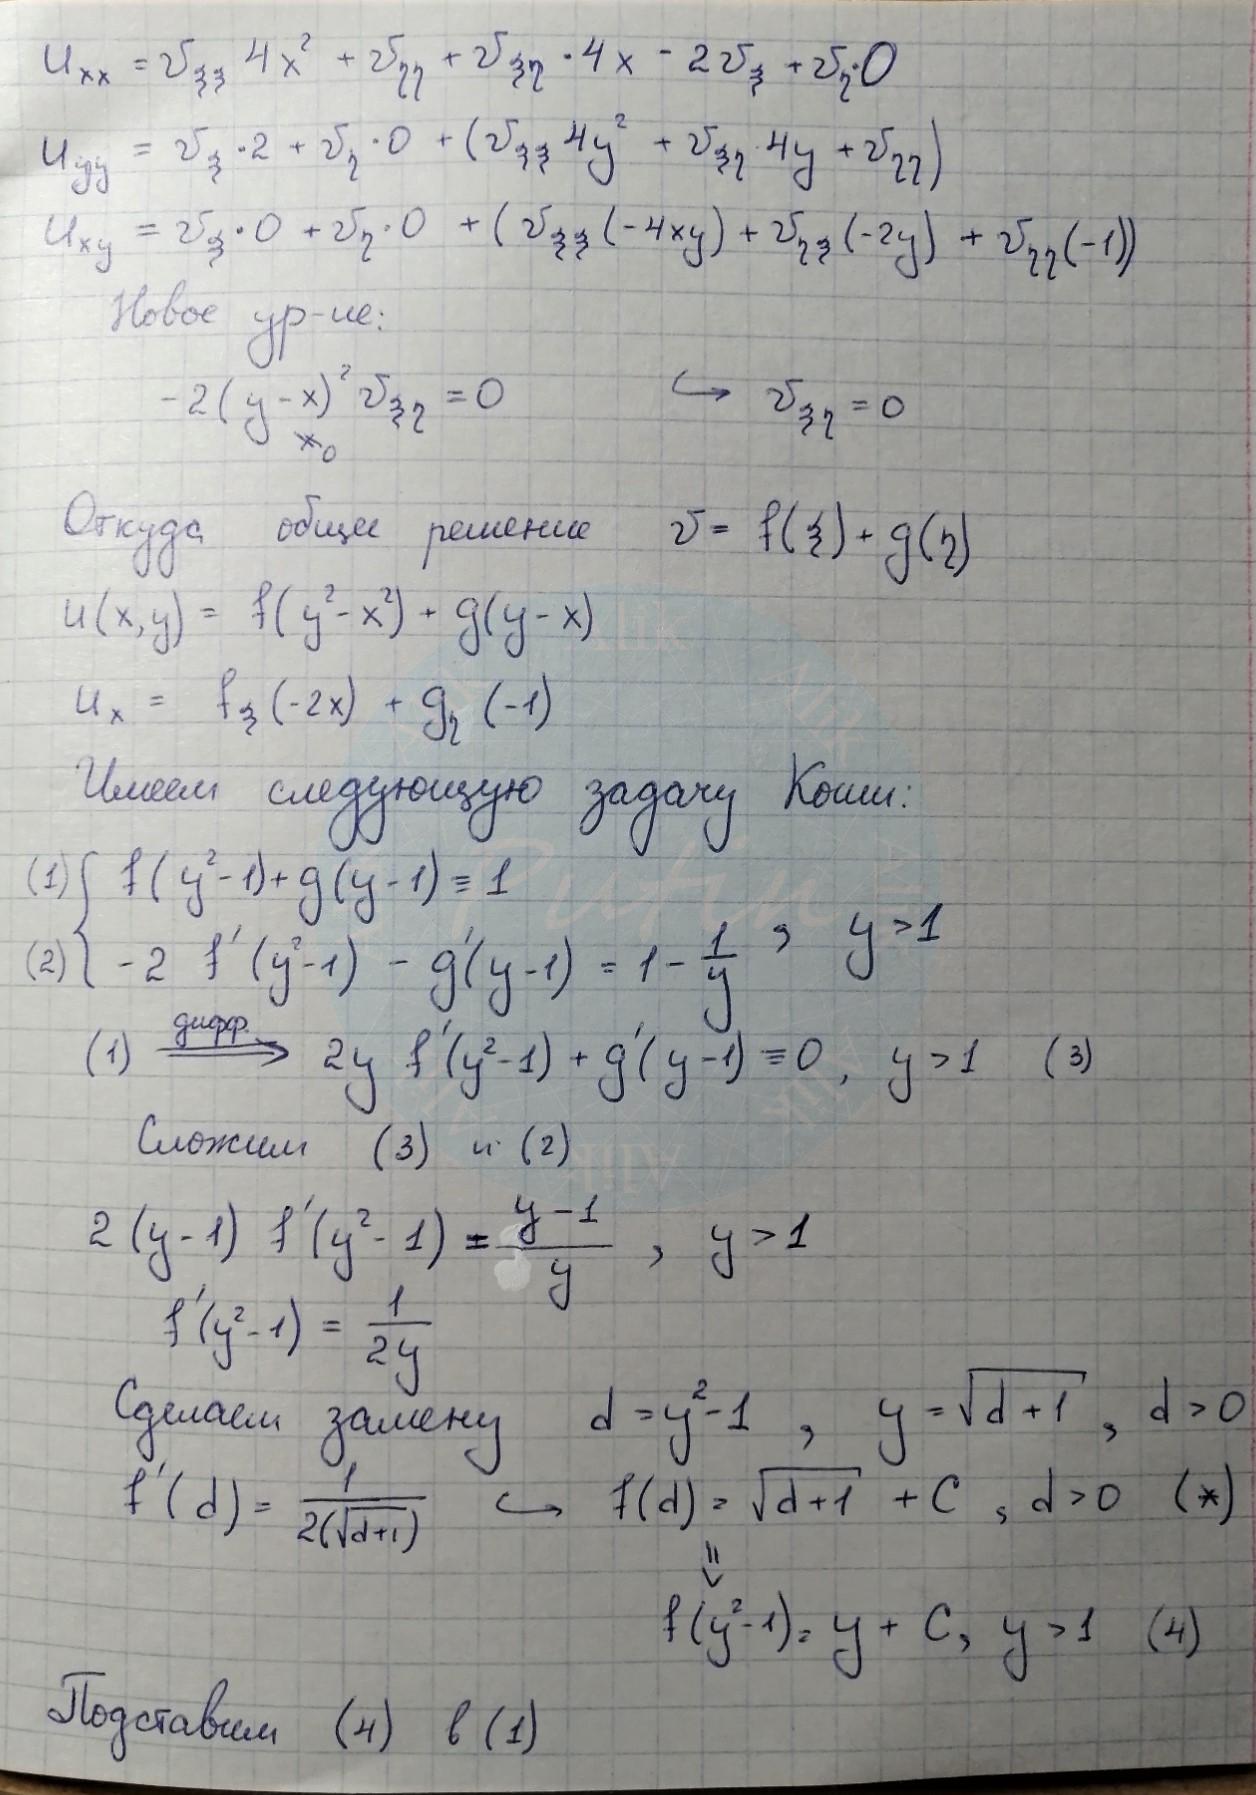 u_xx = v_ξξ 4x² + v_ηη + v_ξη · 4x - 2v_ξ + v_η·0
u_yy = v_ξ·2 + v_η·0 + (v_ξξ 4y² + v_ξη 4y + v_ηη)
u_xy = v_ξ·0 + v_η·0 + (v_ξξ(-4xy) + v_ηξ(-2y) + v_ηη(-1))
Новое ур-ие:
-2(y-x)² v_ξη = 0 ↪ v_ξη = 0
Откуда общее решение v = f(ξ) + g(η)
u(x,y) = f(y²-x²) + g(y-x)
u_x = f_ξ(-2x) + g_η(-1)
Имеем следующую задачу Коши:
(1) { f(y²-1) + g(y-1) ≡ 1
(2) { -2 f'(y²-1) - g'(y-1) = 1 - 1/y , y > 1
(1) дифф. ⟹ 2y f'(y²-1) + g'(y-1) ≡ 0, y > 1 (3)
Сложим (3) и (2)
2(y-1) f'(y²-1) = (y-1)/y , y > 1
f'(y²-1) = 1/2y
Сделаем замену d = y²-1 , y = √(d+1) , d > 0
f'(d) = 1/(2(√(d+1))) ↪ f(d) = √(d+1) + C , d > 0 (*)
f(y²-1) = y + C, y > 1 (4)
Подставим (4) в (1)
Alik
Alik
Putin
Alik
Alik